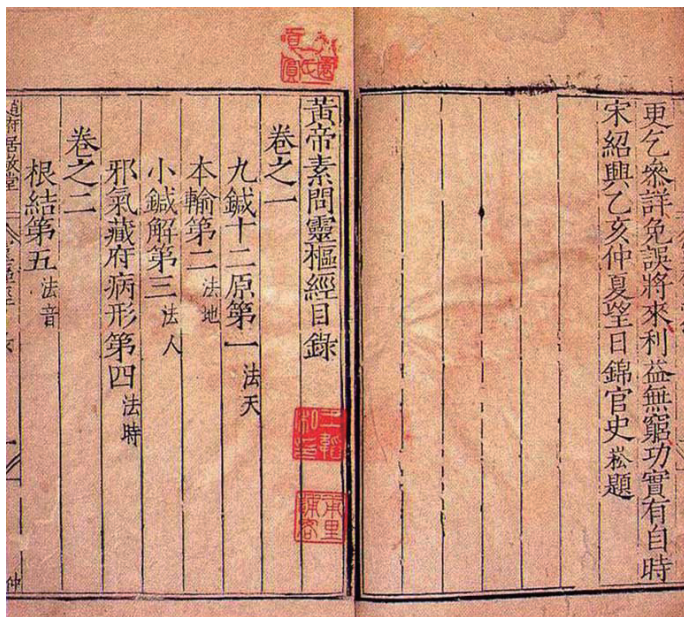 更乞參詳免誤將來利益無窮功實有自時
宋紹興乙亥仲夏望日錦官史崧題
黃帝素問靈樞經目錄
卷之一
九鍼十二原第一 法天
本輸第二 法地
小鍼解第三 法人
邪氣藏府病形第四 法時
卷之二
根結第五 法音
趙府居敬堂
仲